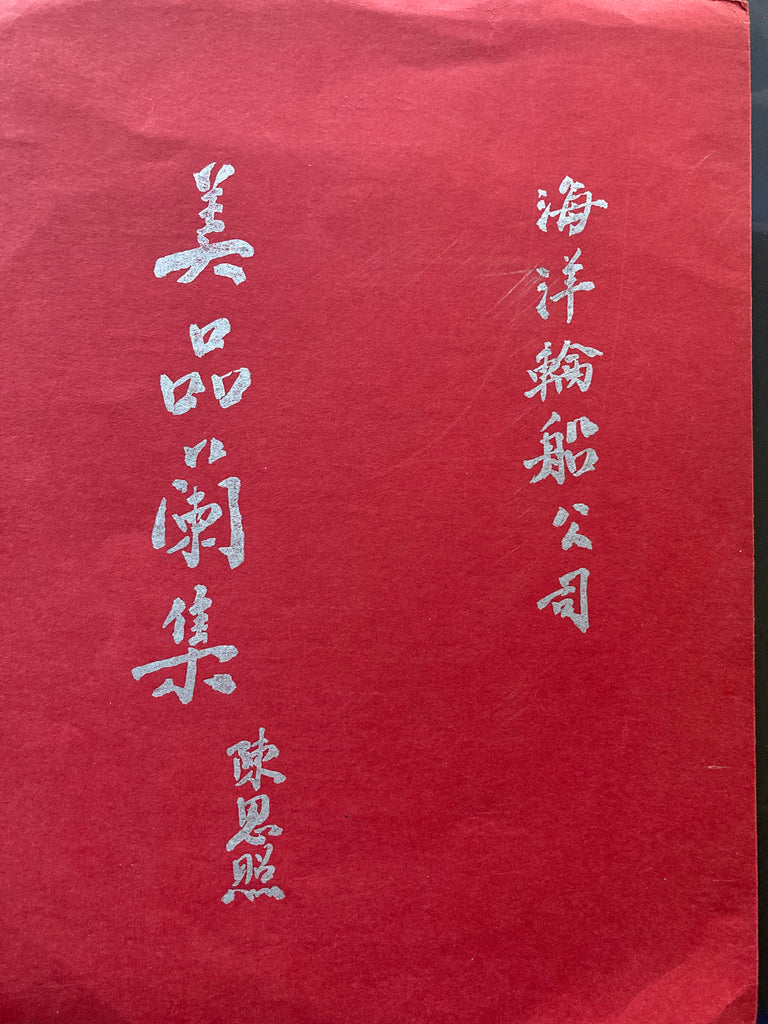 海洋輪船公司
美品蘭集
陳思照